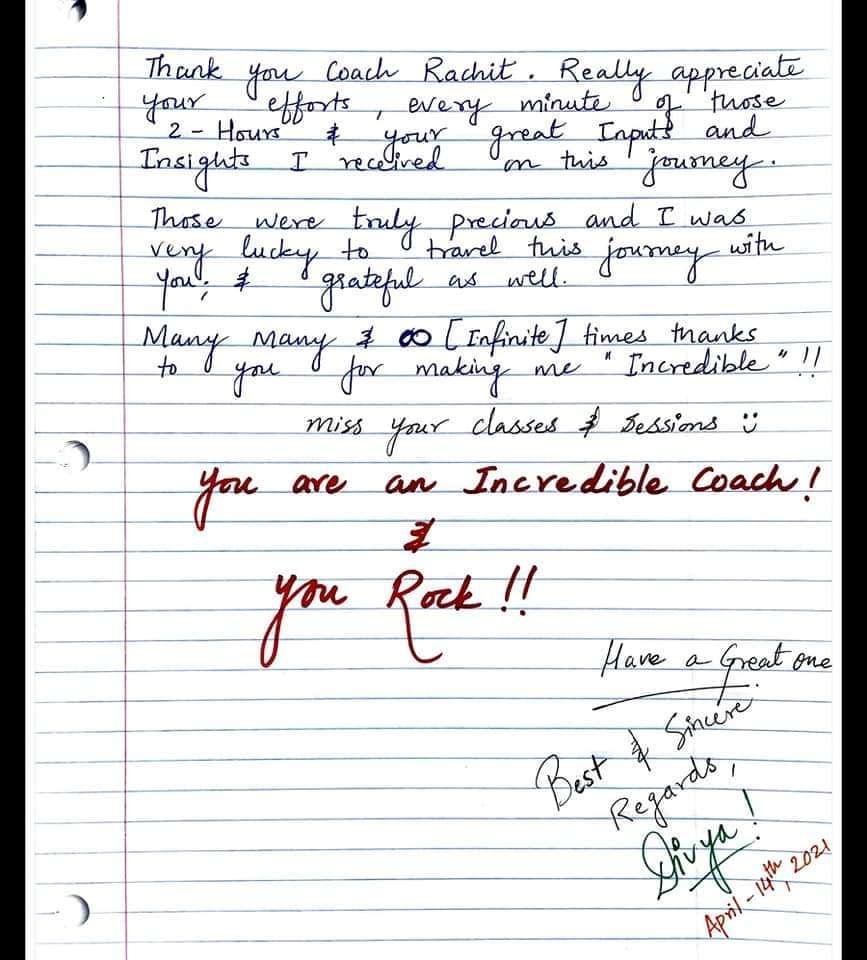 Thank you Coach Rachit. Really appreciate
your efforts, every minute of those
2 - Hours & your great Inputs and
Insights I received on this journey.
Those were truly precious and I was
very lucky to travel this journey with
you; & grateful as well.
Many Many & ∞ [Infinite] times thanks
to you for making me "Incredible"!!
miss your classes & sessions ü
You are an Incredible Coach!
&
you Rock!!
Have a Great one
Best & Sincere
Regards,
Divya!
April - 14th, 2021